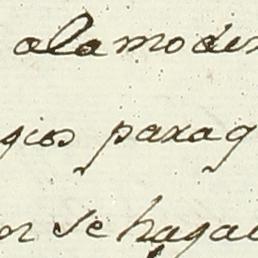 ala moder
gios paraq
or se hagac